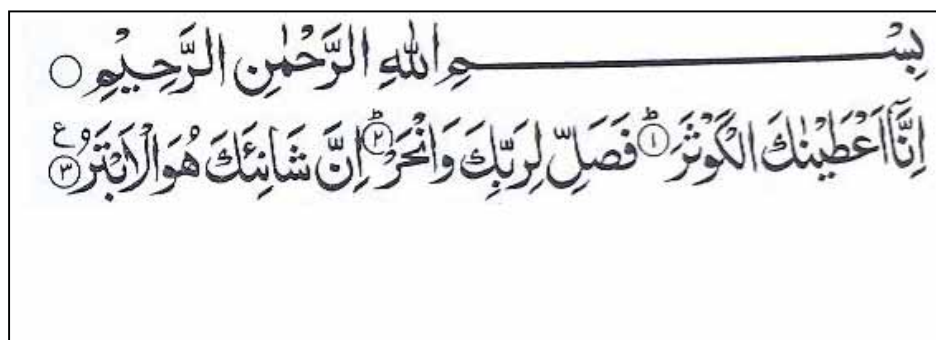 بِسْــــــــــمِ اللهِ الرَّحْمٰنِ الرَّحِيْمِ ○
اِنَّاۤ اَعْطَيْنٰكَ الْكَوْثَرَ ؕ‏﴿۱﴾ فَصَلِّ لِرَبِّكَ وَانْحَرْ ؕ‏﴿۲﴾ اِنَّ شَانِئَكَ هُوَ الْاَبْتَرُ ﴿۳﴾ ع